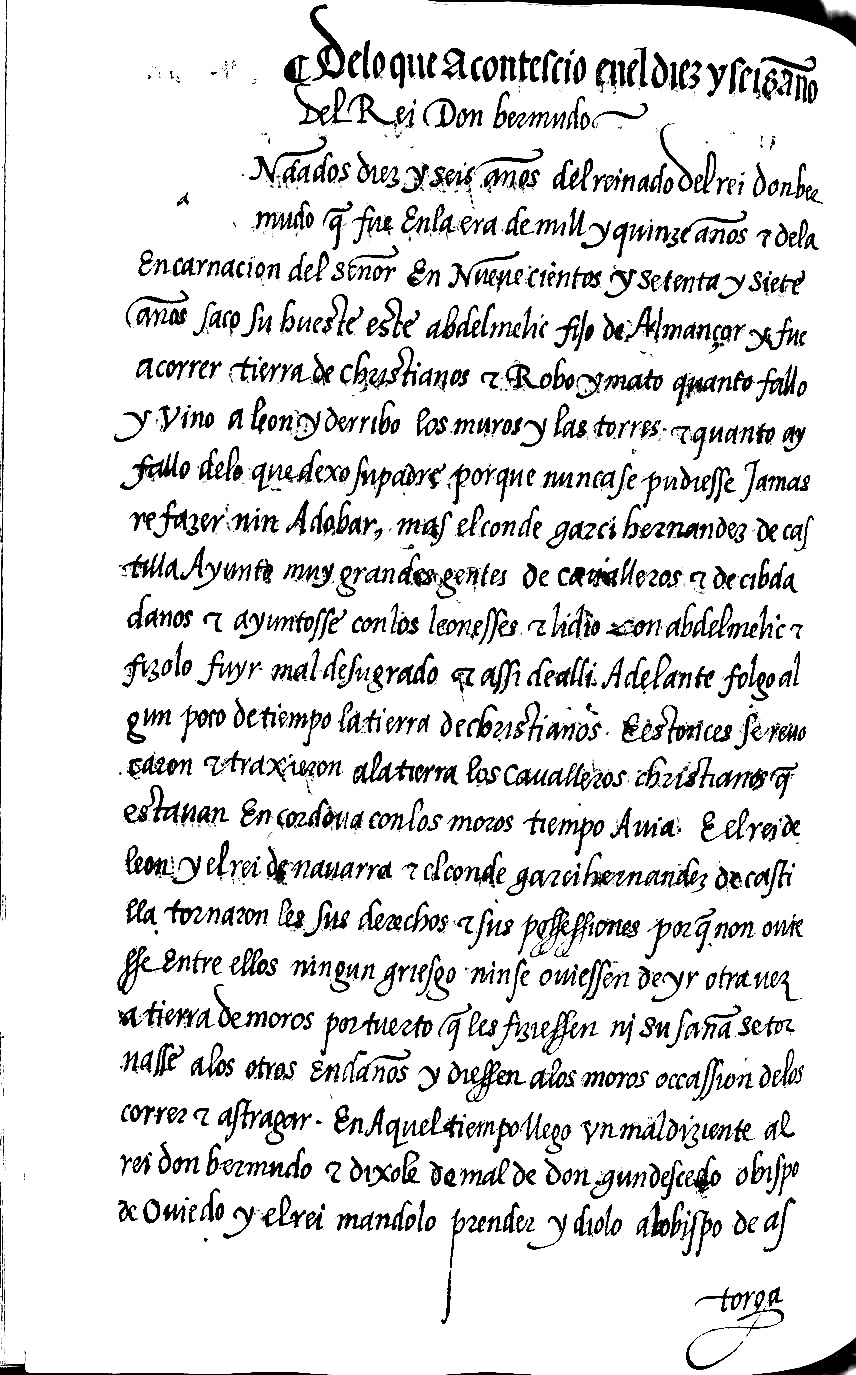 ¶ De lo que Acontescio en el diez y seis año
del Rei Don bermudo
Ndados diez y seis años del reinado del rei don ber
mudo q̄ fue En la era de mill y quinze años ⁊ de la
Encarnacion del señor En Nueve cientos y setenta y siete
años saco su hueste este abdelmelic fijo de Almançor y fue
a correr tierra de christianos ⁊ Robo y mato quanto fallo
y Vino a leon y derribo los muros y las torres ⁊ quanto ay
fallo delo que dexo su padre porque nunca se pudiesse Jamas
refazer nin Adobar, mas el conde garci hernandez de cas
tilla Ayunto muy grandes gentes de cavalleros ⁊ de cibda
danos ⁊ ayuntosse con los leonesses ⁊ lidio con abdelmelic ⁊
fizolo fuyr mal de su grado ⁊ assi de alli Adelante folgo al
gun poco de tiempo la tierra de christianos. E estonces se revo
caron ⁊ traxieron a la tierra los cavalleros christianos q̄
estavan En cordova con los moros tiempo Avia. E el rei de
leon y el rei de navarra ⁊ el conde garci hernandez de casti
lla tornaron les sus derechos ⁊ sus possessiones por q̄ non ovie
sse Entre ellos ningun griesgo nin se oviessen de yr otra vez
a tierra de moros por tuerto q̄ les fiziessen ni su saña se tor
nasse a los otros En daños y diessen a los moros occassion de los
correr ⁊ astragar. En Aquel tiempo llego vn maldiziente al
rei don bermudo ⁊ dixole de mal de don gundescedo obispo
de Oviedo y el rei mandolo prender y diolo al obispo de as
torga